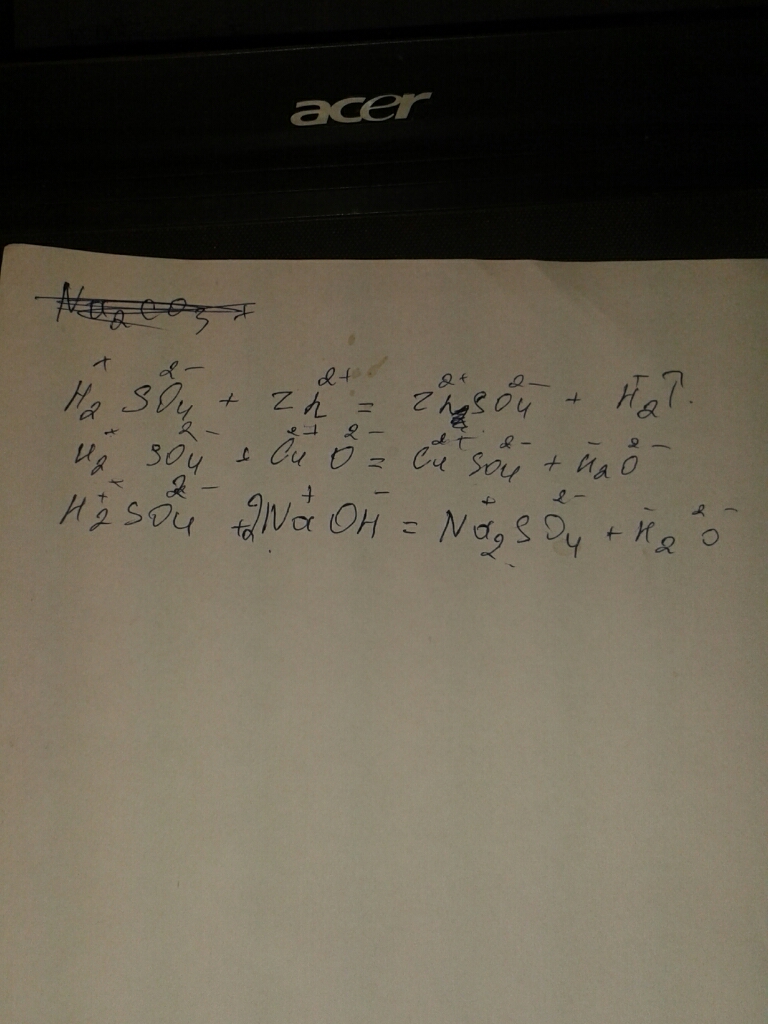 acer
Na₂CO₃ +
H₂⁺SO₄²⁻ + Zn²⁺ = Zn²⁺SO₄²⁻ + H₂↑.
H₂⁺SO₄²⁻ + Cu²⁺O²⁻ = Cu²⁺SO₄²⁻ + H₂⁻O²⁻
H₂⁺SO₄²⁻ + 2Na⁺OH⁻ = Na₂⁺SO₄²⁻ + H₂⁻O²⁻